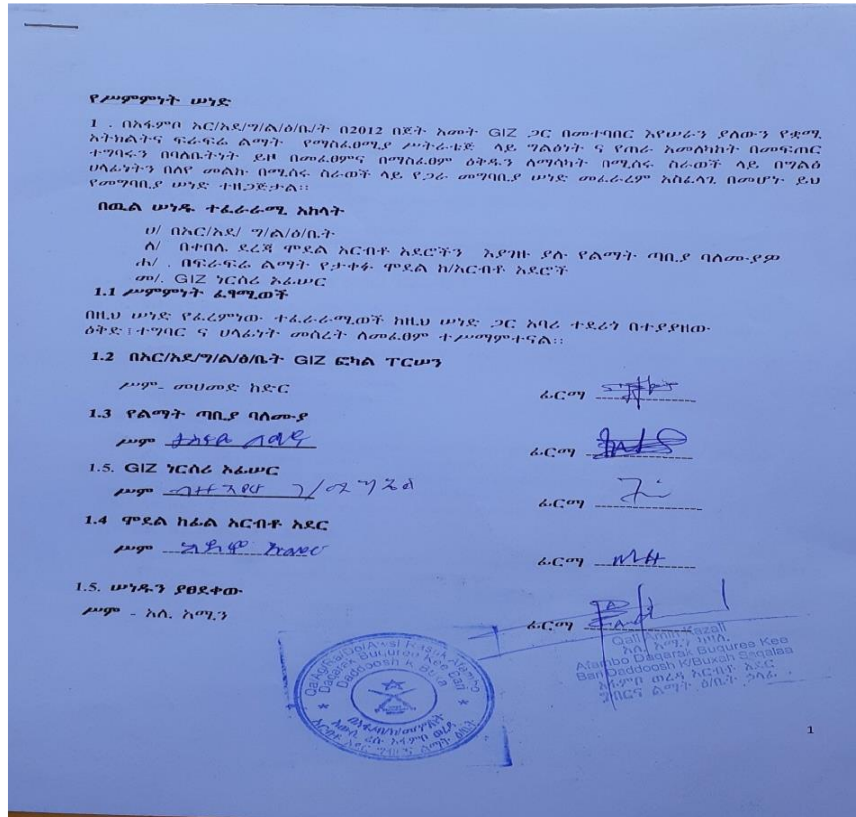 የሥምምነት ሠነድ
1 . በአፋምቦ አር/አደ/ግ/ል/ዕ/ቤ/ት በ2012 በጀት አመት GIZ ጋር በመተባበር እየሠራን ያለውን የቋሚ
አትክልትና ፍራፍሬ ልማት የማስፈፀሚያ ሥትራቴጅ ላይ ግልፅነት ና የጠራ አመለካከት በመፍጠር
ተግባሩን በባለቤትነት ይዞ በመፈፀምና በማስፈፀም ዕቅዱን ለማሳካት በሚሰሩ ስራወች ላይ በግልፅ
ሀላፊነትን በለየ መልኩ በሚሰሩ ስራወች ላይ የጋራ መግባቢያ ሠነድ መፈራረም አስፈላጊ በመሆኑ ይህ
የመግባቢያ ሠነድ ተዘጋጅታል፡፡
በዉል ሠነዱ ተፈራራሚ አከላት
ሀ/ በአር/አደ/ ግ/ል/ዕ/ቤ/ት
ለ/ በቀበሌ ደረጃ ሞደል አርብቶ አደሮችን እያገዙ ያሉ የልማት ጣቢያ ባለሙያዎ
ሐ/ . በፍራፍሬ ልማት የታቀፉ ሞደል ከ/አርብቶ አደሮች
መ/. GIZ ነርሰሪ ኦፊሠር
1.1 ሥምምነት ፈፃሚወች
በዚህ ሠነድ የፈረምነው ተፈራራሚወች ከዚህ ሠነድ ጋር አባሪ ተደሪጎ በተያያዘው
ዕቅድ ፤ተግባር ና ሀላፊነት መሰረት ለመፈፀም ተሥማምተናል፡፡
1.2 በአር/አደ/ግ/ል/ዕ/ቤት GIZ ፎካል ፐርሠን
ሥም- መሀመድ ከድር ፊርማ
1.3 የልማት ጣቢያ ባለሙያ
ሥም ፊርማ
1.5. GIZ ነርሰሪ ኦፊሠር
ሥም ፊርማ
1.4 ሞደል ከፊል አርብቶ አደር
ሥም ፊርማ
1.5. ሠነዱን ያፀደቀው
ሥም - አሊ አሚን ፊርማ
Qali Amin Kazali
Afambo Daqarsk Buquree Kee
Bari Daddoosh K/Buxah Saqalaa
Daqarsk Buquree Kee Bari
Daddoosh K Buxa
1